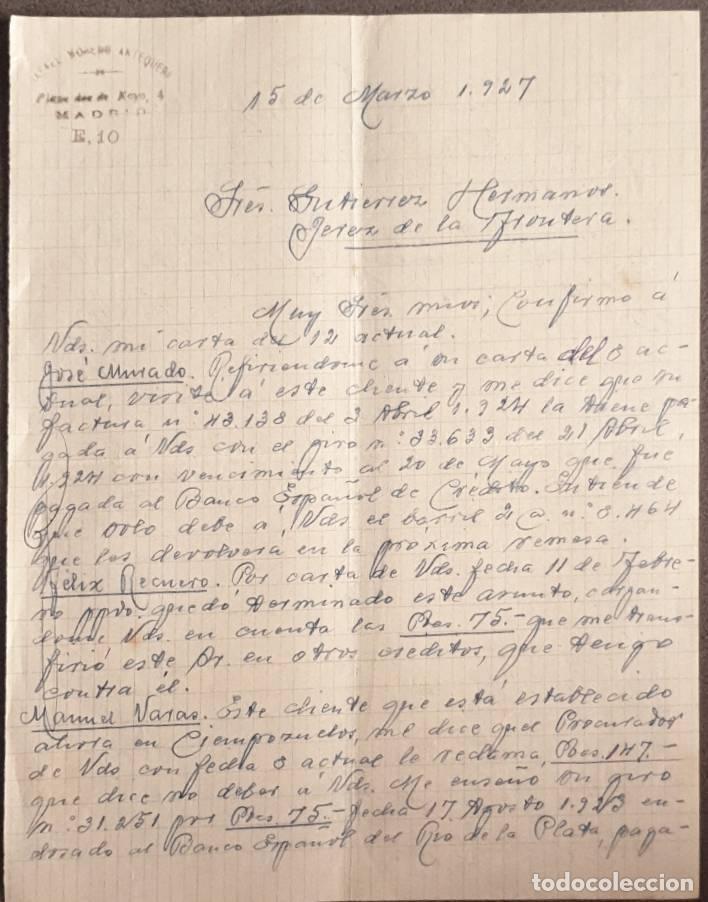 RAFAEL MORENO ANTEQUERA
Plaza dos de Mayo, 4
MADRID
E, 10
15 de Marzo 1.927
Srés. Gutierrez Hermanos.
Jerez de la Frontera.
Muy Srés. mios; Confirmo á
Vds. mi carta del 12 actual.
José Murado. Refiriendome á su carta del 8 ac-
tual, visité á este cliente y me dice que su
factura n.º 43.138 del 3 Abril 1.924 la tiene pa-
gada á Vds con el giro n.º 33.633 del 21 Abril
1.924 con vencimiento al 20 de Mayo que fue
pagada al Banco Español de Crédito. Entiende
que solo debe á Vds el barril 2 @. n.º 8.464
que les devolverá en la próxima remesa.
Félix Recuero. Por carta de Vds. fecha 11 de Febre-
ro ppdo. quedó terminado este asunto, cargan-
dome Vds. en cuenta las Ptas. 75.- que me trans-
firió este Sr. en otros creditos, que tengo
contra él.
Manuel Varas. Este cliente que está establecido
ahora en Ciempozuelos, me dice que Procurador
de Vds con fecha 8 actual le reclama, Ptas. 147.-
que dice no deber á Vds. Me enseñó un giro
n.º 31.251 por Ptas. 75.- fecha 17 Agosto 1.923 en-
dosado al Banco Español del Rio de la Plata, paga-
todocoleccion